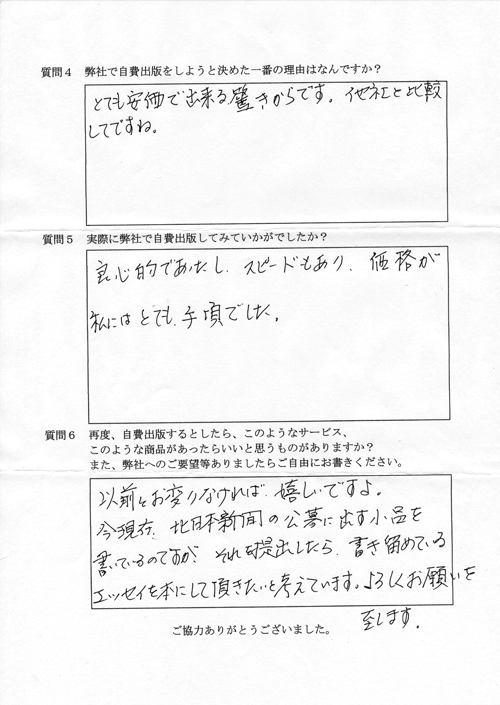 質問４　弊社で自費出版をしようと決めた一番の理由はなんですか？
とても安価で出来る驚きからです。他社と比較
してですね。
質問５　実際に弊社で自費出版してみていかがでしたか？
良心的であたし、スピードもあり、価格が
私にはとても、手頃でした。
質問６　再度、自費出版するとしたら、このようなサービス、
このような商品があったらいいと思うものがありますか？
また、弊社へのご要望等ありましたらご自由にお書きください。
以前とお変りなければ、嬉しいですよ。
今現在、北日本新聞の公募に出す小品を
書いているのですが、それを提出したら、書き留めている
エッセイを本にして頂きたいと考えています。よろしくお願いを
至します。
ご協力ありがとうございました。